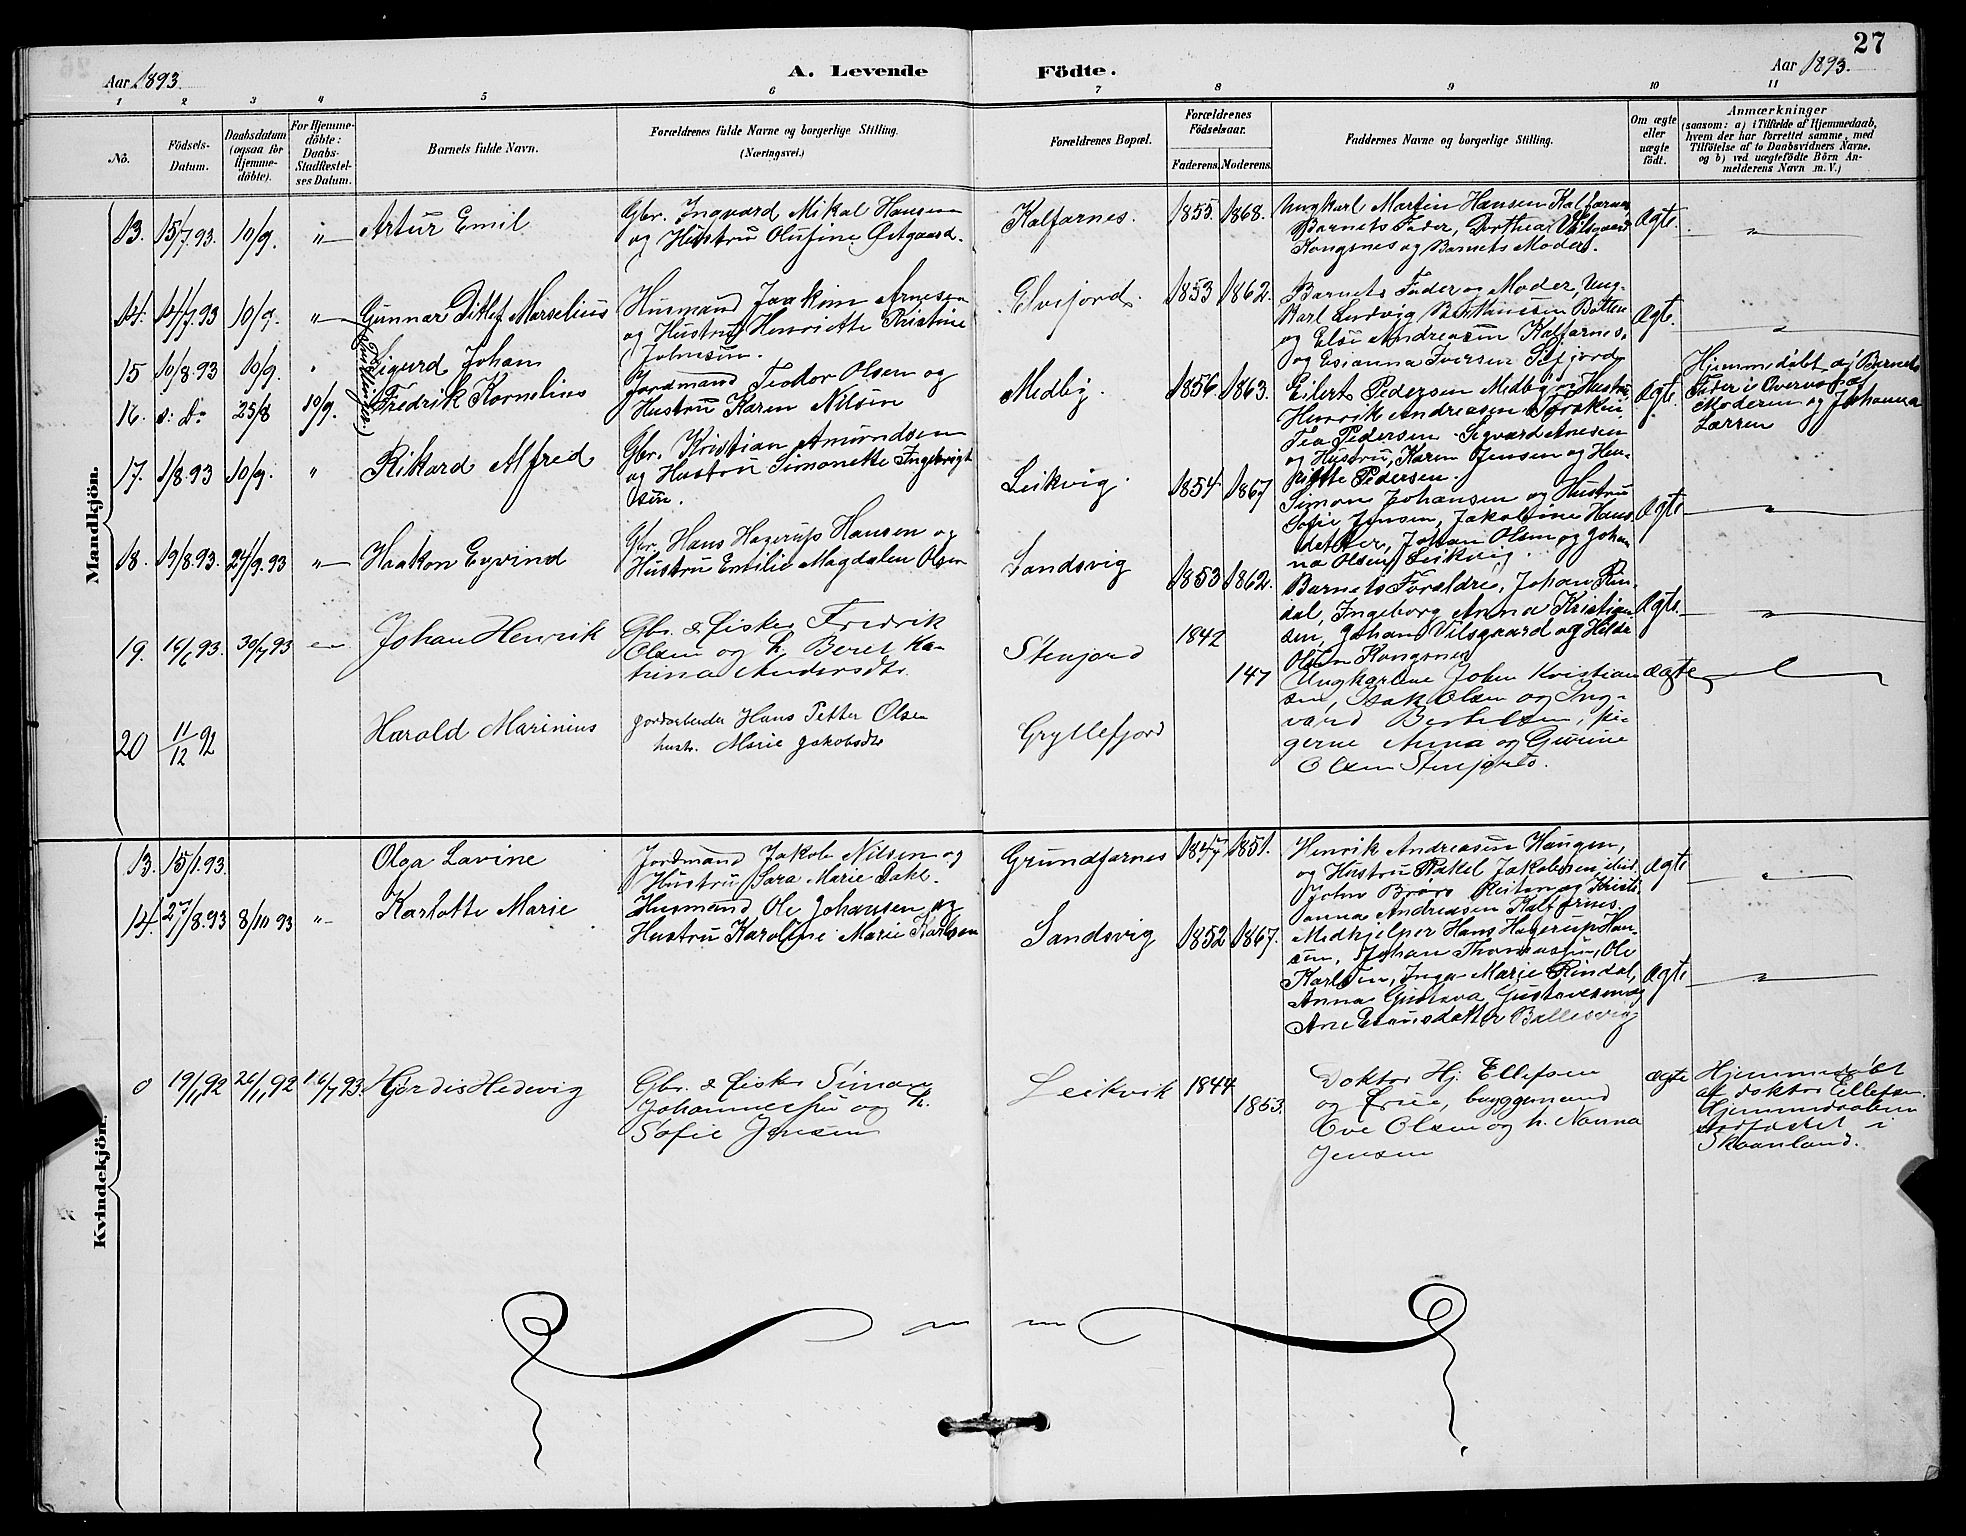 27
Aar 1893.
A. Levende Födte.
Aar 1893.
1 2 3 4 5 6 7 8 9 10 11
No.
Födsels-
Datum.
Daabsdatum
(ogsaa for
Hjemme-
döbte).
For Hjemme-
döbte:
Daabs-
Stadfæstel-
ses Datum.
Barnets fulde Navn.
Forældrenes fulde Navne og borgerlige Stilling.
(Næringsvei.)
Forældrenes Bopæl.
Forældrenes
Födselsaar.
Faderens. Moderens.
Faddernes Navne og borgerlige Stilling.
Om ægte
eller
uægte
födt.
Anmærkninger
(saasom: a) i Tilfælde af Hjemmedaab,
hvem der har forrettet samme, med
Tilföielse af to Daabsvidners Navne,
og b) ved uægtefödte Börn An-
melderens Navn m. V.)
Mandkjön.
13. 15/7 93. 10/9. "
Artur Emil
Gbr. Ingvard Mikal Hansen
og Hustru Olufine Østgaard.
Kalfarnes.
1855. 1868.
Ungkarl Martin Hansen Kalfarnes
Barnets Fader, Dorthea Vilsgaard
Kongsnes og Barnets Moder.
Ægte. "
14. 14/7 93 10/9. "
Gunnar Ditlef Marselius
Husmand Joakim Arnesen
og Hustru Henriette Kristine
Johnsen.
Elvefjord.
1853 1862.
Barnets Fader og Moder, Ung-
karl Ludvig Botten
og Andreasen Kalfarnes.
og Esianna Iversen
Ægte. "
15 10/8 93 10/9. "
Sigurd Johan
(Tvillinger)
16. s. D. 25/8 10/9.
Fredrik Kornelius
Jordmand Teodor Olsen og
Hustru Karen Nilsen
Medby.
1856 1863.
Eilert Pedersen Medby og Hustru
Henrik Andreasen
Tea Pedersen Sigvard Arnesen
og Hustru, Karen Jensen og Hen-
riette Pedersen.
Ægte.
Hjemmedøbt af Barnets
Fader i Overvær af
Moderen og Johanna
Larsen
17. 1/8 93 10/9. "
Rikard Alfred
Gbr. Kristian Amundsen
og Hustru Simonette Ingebrigt
sen.
Leikvig.
1854 1867
Simon Johansen og Hustru
Sofie Jensen, Jakobine Hans
datter, Johan Olsen og Johan
na Olsen Leikvig.
Ægte "
18. 19/8 93. 24/9.93 "
Haakon Eyvind
Gbr. Hans Hagerup Hansen og
Hustru Emilie Magdalen Olsen
Sandsvig
1853 1862.
Barnets Forældre, Johan Rin-
dal, Ingeborg Anna Kristian
sen, Johan Vilsgaard og Hilda
Olsen Kongsnes
Ægte. "
19. 16/6 93. 30/7 93
Johan Henrik
Gbr. & Fisker Fredrik
Olsen og h. Beret Ka-
trina Andersdtr.
Stenjord
1842
147
Ungkarlene John Kristian
sen, Isak Olsen og Ing-
vard Bertelsen, pi-
gerne Anna og Gurine
Olsen Stenjord.
ægte
20 11/12 92
Harald Marinius
Jordarbeider Hans Petter Olsen
hustr. Marie Jakobsdtr
Gryllefjord
Kvindekjön.
13. 15/1.93.
Olga Lavine
Jordmand Jakob Nilsen og
Hustru Sara Marie Dahl.
Grundfarnes
1847 1851.
Henrik Andreasen Haugen,
og Hustru Rakel Jakobsen ibid
John Brors Reiten og Kristi
anna Andreasen Kalfarnes.
ægte "
14. 27/8.93 8/10 93 "
Karlotte Marie
Husmand Ole Johansen og
Hustru Karoline Marie Karlsen
Sandsvig
1852 1867.
Medhjelper Hans Hagerup Han-
sen, Johan Thomassen, Ole
Karlsen, Inga Marie Rindal,
Anna Gustava Gustavesen og
Ane Enausdatter Ballesvig
ægte "
0 19/1 92 26/1 92 16/7 93.
Hjørdis Hedevig
Gbr. & Fisker Simon
Johannessen og h.
Sofie Jensen
Leikvik
1844
1853.
Doktor Hj. Ellefsen
og Frue, byggemand
Ove Olsen og h. Nanna
Jensen
ægte
Hjemmedøbt
af doktor Ellefsen.
Hjemmedaaben
stadfæstet i
Skaanland.